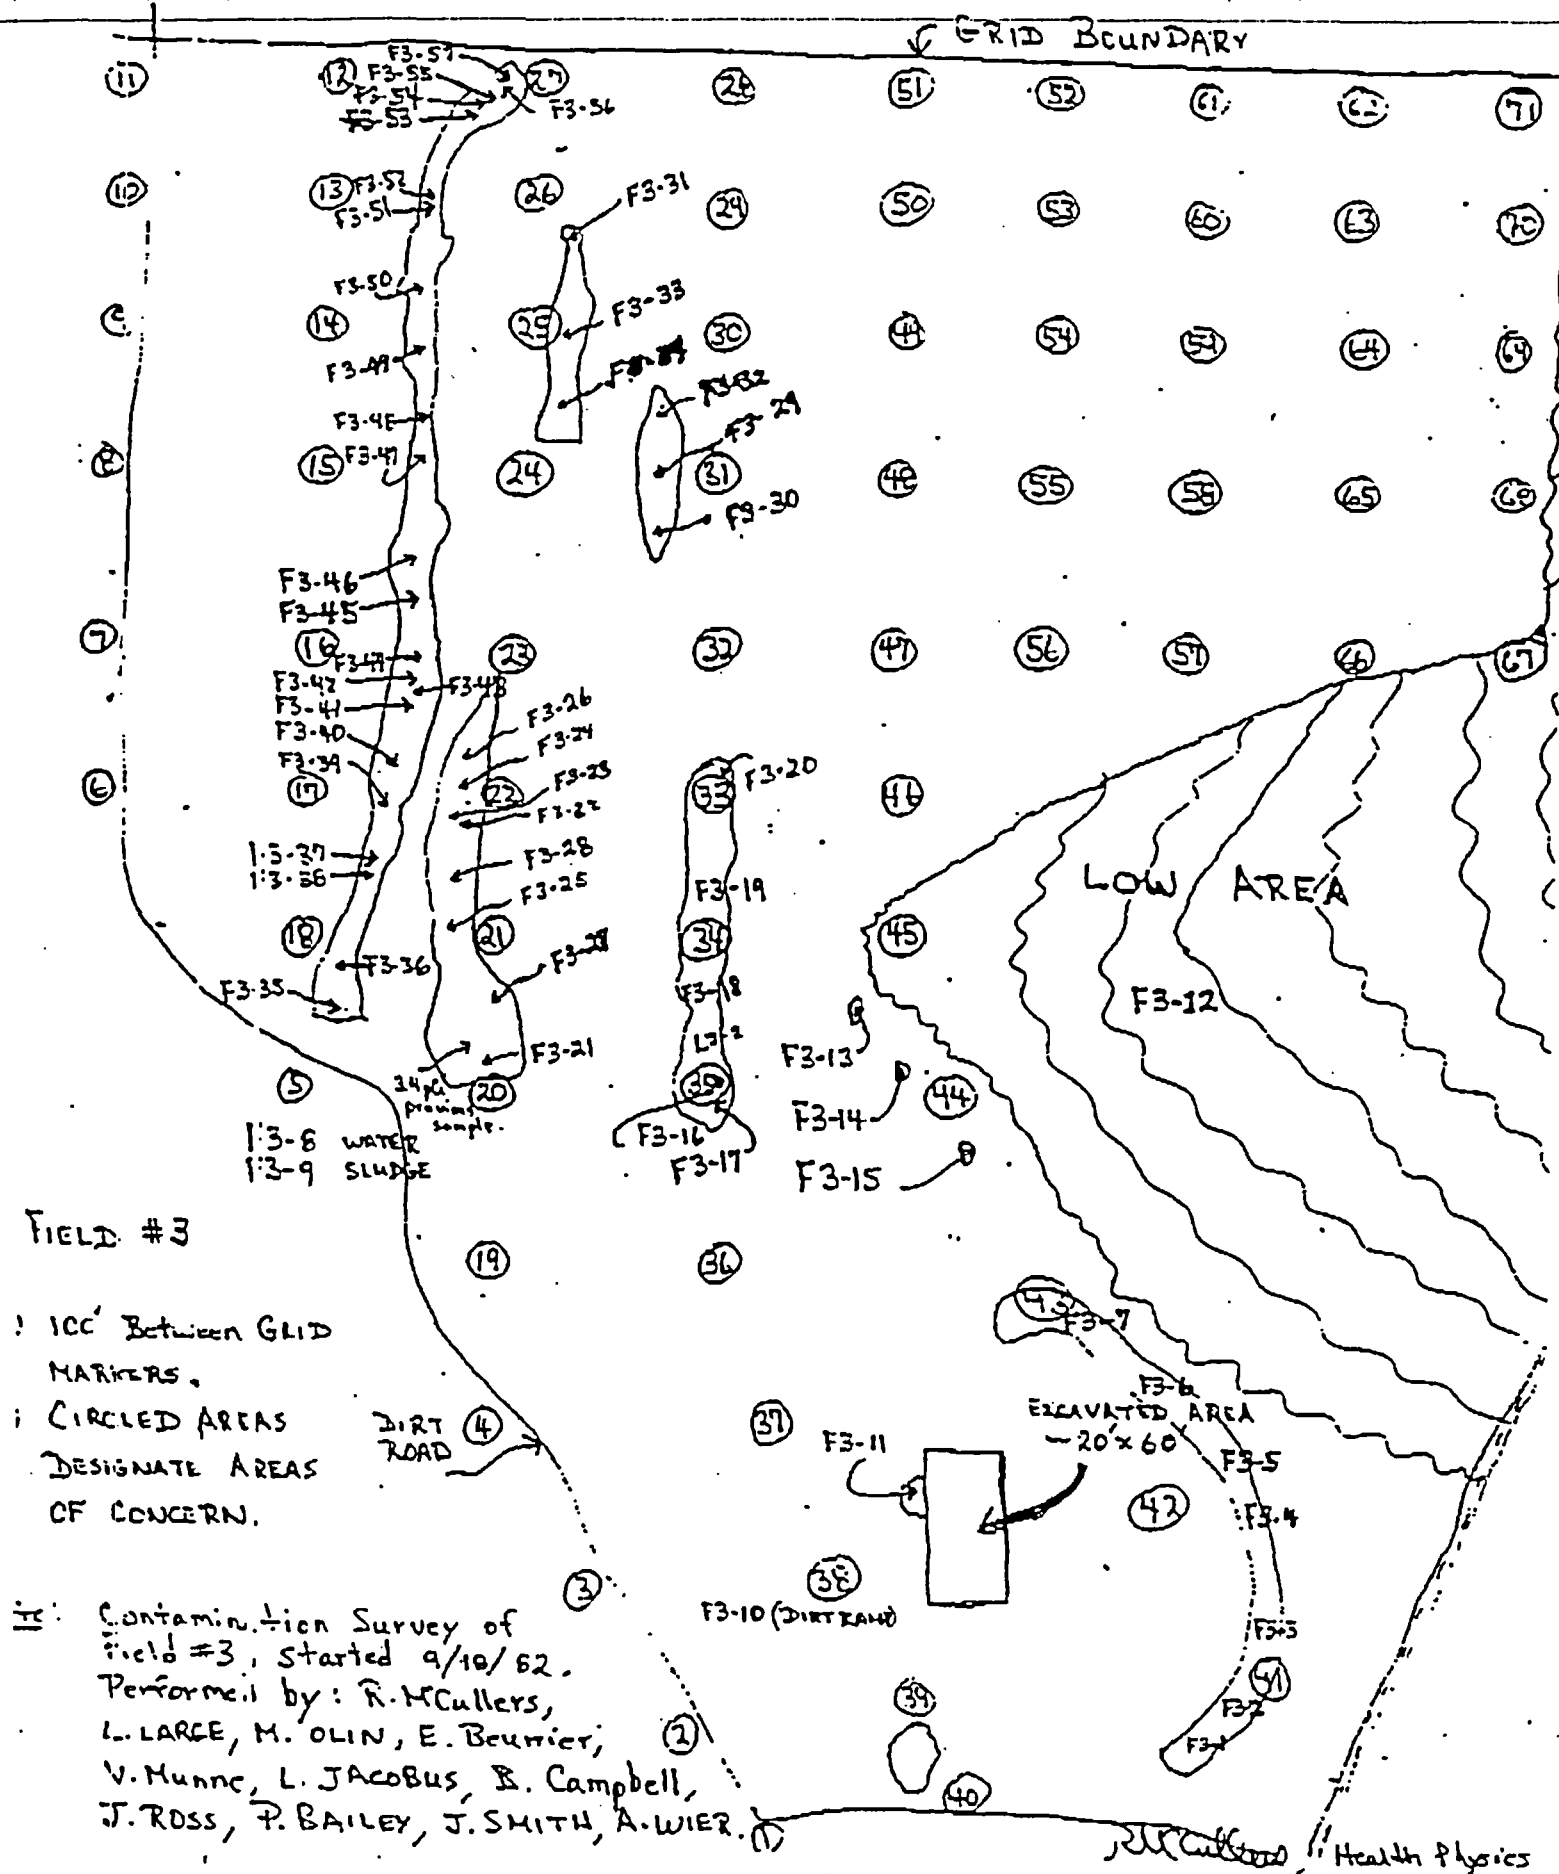 GRID BOUNDARY
11 12 27 28 51 52 61 62 71
F3-57
F3-55
F3-54
F3-53
F3-56
10 13 26 29 50 53 60 63 70
F3-52
F3-51
F3-31
F3-50
F3-33
14 25 30 49 54 59 64 69
F3-49
F3-32
F3-48
F3-29
F3-47
8 15 24 31 48 55 58 65 68
F3-30
F3-46
F3-45
7 16 23 32 47 56 57 66 67
F3-42
F3-41
F3-40
F3-39
F3-26
F3-24
F3-23
F3-22
F3-20
6 17 22 33 46
F3-37
F3-38
F3-28
F3-25
F3-19
LOW AREA
18 21 34 45
F3-36
F3-35
F3-18
F3-12
F3-21
F3-13
5 20 35 44
previous
sample.
F3-14
F3-8 WATER
F3-9 SLUDGE
F3-16
F3-17
F3-15
FIELD #3
19 36
43
F3-7
100' Between GRID
MARKERS.
CIRCLED AREAS
DESIGNATE AREAS
OF CONCERN.
DIRT
ROAD
4 37
F3-6
EXCAVATED AREA
~20'x60'
F3-11
F3-5
42
F3-4
3 38
F3-10 (DIRT RAMP)
F3-3
Contamination Survey of
Field #3, started 9/10/82.
Performed by: R. McCullers,
L. LARGE, M. OLIN, E. Beumier,
V. Munne, L. JACOBUS, B. Campbell,
J. ROSS, P. BAILEY, J. SMITH, A. WIER.
2 39 41
F3-2
F3-1
40
1
RMcCullers Health Physics